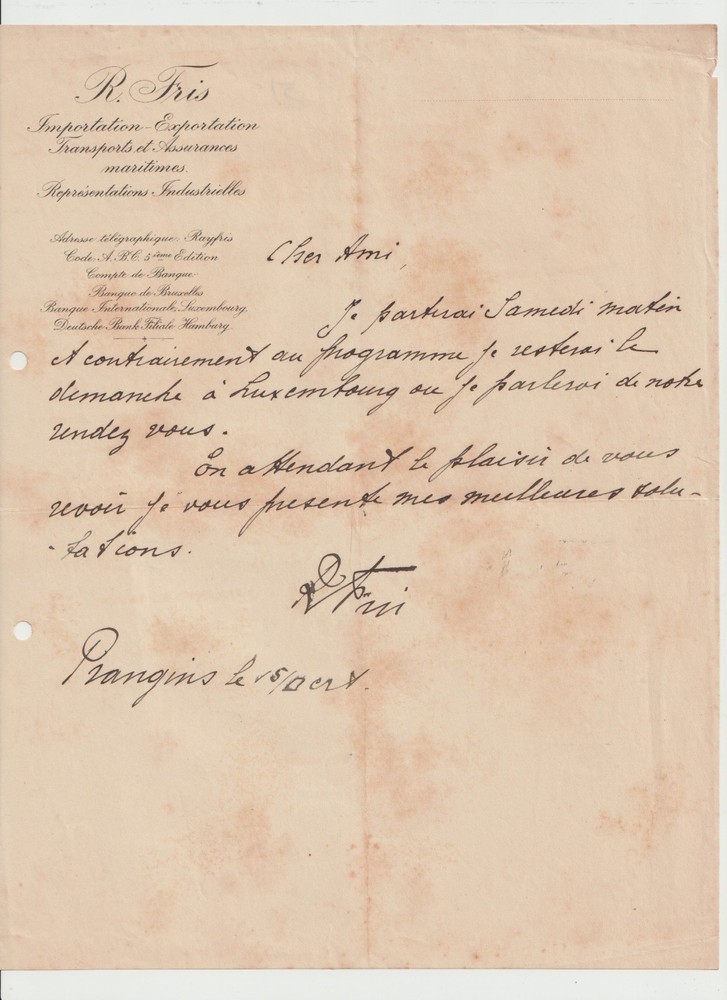 R. Fris
Importation-Exportation
Transports et Assurances
maritimes.
Représentations Industrielles
Adresse télégraphique: Rayfris
Code A.B.C. 5ième Edition
Compte de Banque
Banque de Bruxelles
Banque Internationale, Luxembourg.
Deutsche-Bank Filiale Hamburg.
Cher Ami,
Je parterai Samedi matin
et contrairement au programme je resterai le
dimanche à Luxembourg ou je parlerai de notre
rendez vous.
En attendant le plaisir de vous
revoir je vous presente mes meilleures salu-
-tations.
R Fris
Prangins le 15/ crt.